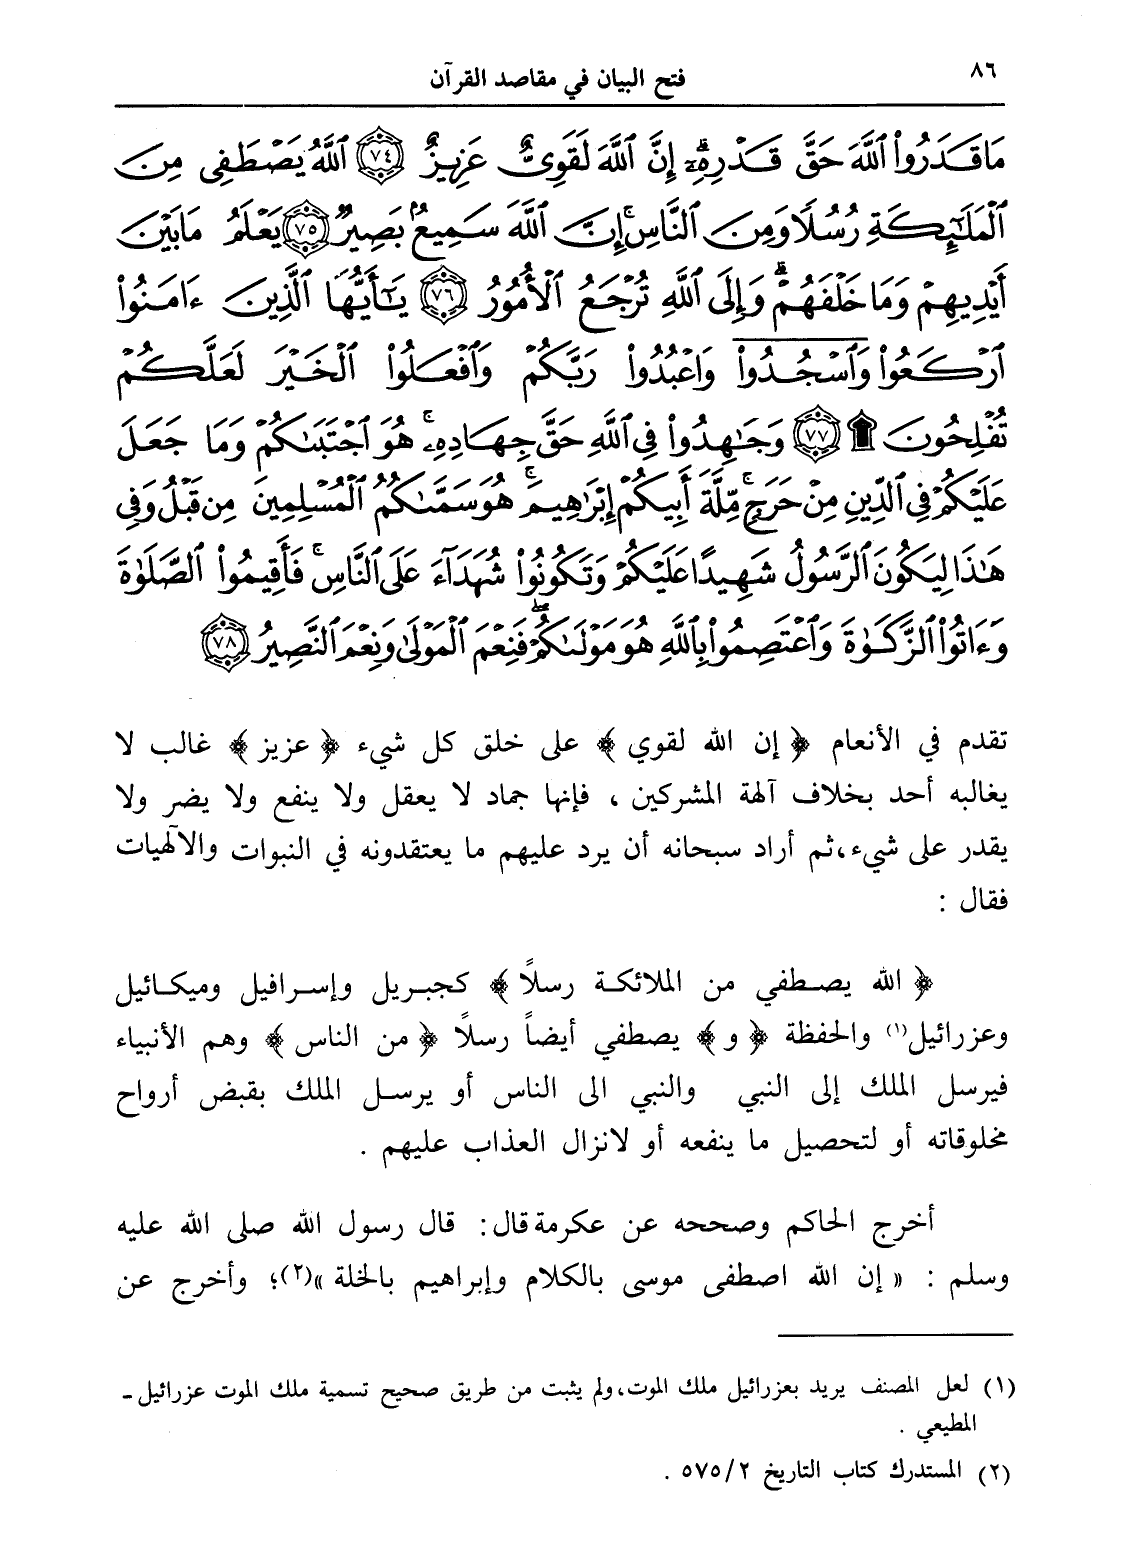 ٨٦
فتح البيان في مقاصد القرآن
مَا قَدَرُوا۟ ٱللَّهَ حَقَّ قَدْرِهِۦٓ ۗ إِنَّ ٱللَّهَ لَقَوِىٌّ عَزِيزٌ ﴿٧٤﴾ ٱللَّهُ يَصْطَفِى مِنَ
ٱلْمَلَٰٓئِكَةِ رُسُلًا وَمِنَ ٱلنَّاسِ ۚ إِنَّ ٱللَّهَ سَمِيعٌۢ بَصِيرٌ ﴿٧٥﴾ يَعْلَمُ مَا بَيْنَ
أَيْدِيهِمْ وَمَا خَلْفَهُمْ ۗ وَإِلَى ٱللَّهِ تُرْجَعُ ٱلْأُمُورُ ﴿٧٦﴾ يَٰٓأَيُّهَا ٱلَّذِينَ ءَامَنُوا۟
ٱرْكَعُوا۟ وَٱسْجُدُوا۟ وَٱعْبُدُوا۟ رَبَّكُمْ وَٱفْعَلُوا۟ ٱلْخَيْرَ لَعَلَّكُمْ
تُفْلِحُونَ ۩ ﴿٧٧﴾ وَجَٰهِدُوا۟ فِى ٱللَّهِ حَقَّ جِهَادِهِۦ ۚ هُوَ ٱجْتَبَىٰكُمْ وَمَا جَعَلَ
عَلَيْكُمْ فِى ٱلدِّينِ مِنْ حَرَجٍ ۚ مِّلَّةَ أَبِيكُمْ إِبْرَٰهِيمَ ۚ هُوَ سَمَّىٰكُمُ ٱلْمُسْلِمِينَ مِن قَبْلُ وَفِى
هَٰذَا لِيَكُونَ ٱلرَّسُولُ شَهِيدًا عَلَيْكُمْ وَتَكُونُوا۟ شُهَدَآءَ عَلَى ٱلنَّاسِ ۚ فَأَقِيمُوا۟ ٱلصَّلَوٰةَ
وَءَاتُوا۟ ٱلزَّكَوٰةَ وَٱعْتَصِمُوا۟ بِٱللَّهِ هُوَ مَوْلَىٰكُمْ ۖ فَنِعْمَ ٱلْمَوْلَىٰ وَنِعْمَ ٱلنَّصِيرُ ﴿٧٨﴾
تقدم في الأنعام ﴿ إن الله لقوي ﴾ على خلق كل شيء ﴿ عزيز ﴾ غالب لا
يغالبه أحد بخلاف آلهة المشركين ، فإنها جماد لا يعقل ولا ينفع ولا يضر ولا
يقدر على شيء،ثم أراد سبحانه أن يرد عليهم ما يعتقدونه في النبوات والآلهيات
فقال :
﴿ الله يصطفي من الملائكة رسلاً ﴾ كجبريل وإسرافيل وميكائيل
وعزرائيل(١) والحفظة ﴿ و ﴾ يصطفي أيضاً رسلاً ﴿ من الناس ﴾ وهم الأنبياء
فيرسل الملك إلى النبي والنبي الى الناس أو يرسل الملك بقبض أرواح
مخلوقاته أو لتحصيل ما ينفعه أو لانزال العذاب عليهم .
أخرج الحاكم وصححه عن عكرمة قال : قال رسول الله صلى الله عليه
وسلم : « إن الله اصطفى موسى بالكلام وإبراهيم بالخلة »(٢)؛ وأخرج عن
(١) لعل المصنف يريد بعزرائيل ملك الموت،ولم يثبت من طريق صحيح تسمية ملك الموت عزرائيل-
المطيعي .
(٢) المستدرك كتاب التاريخ ٢/٥٧٥ .